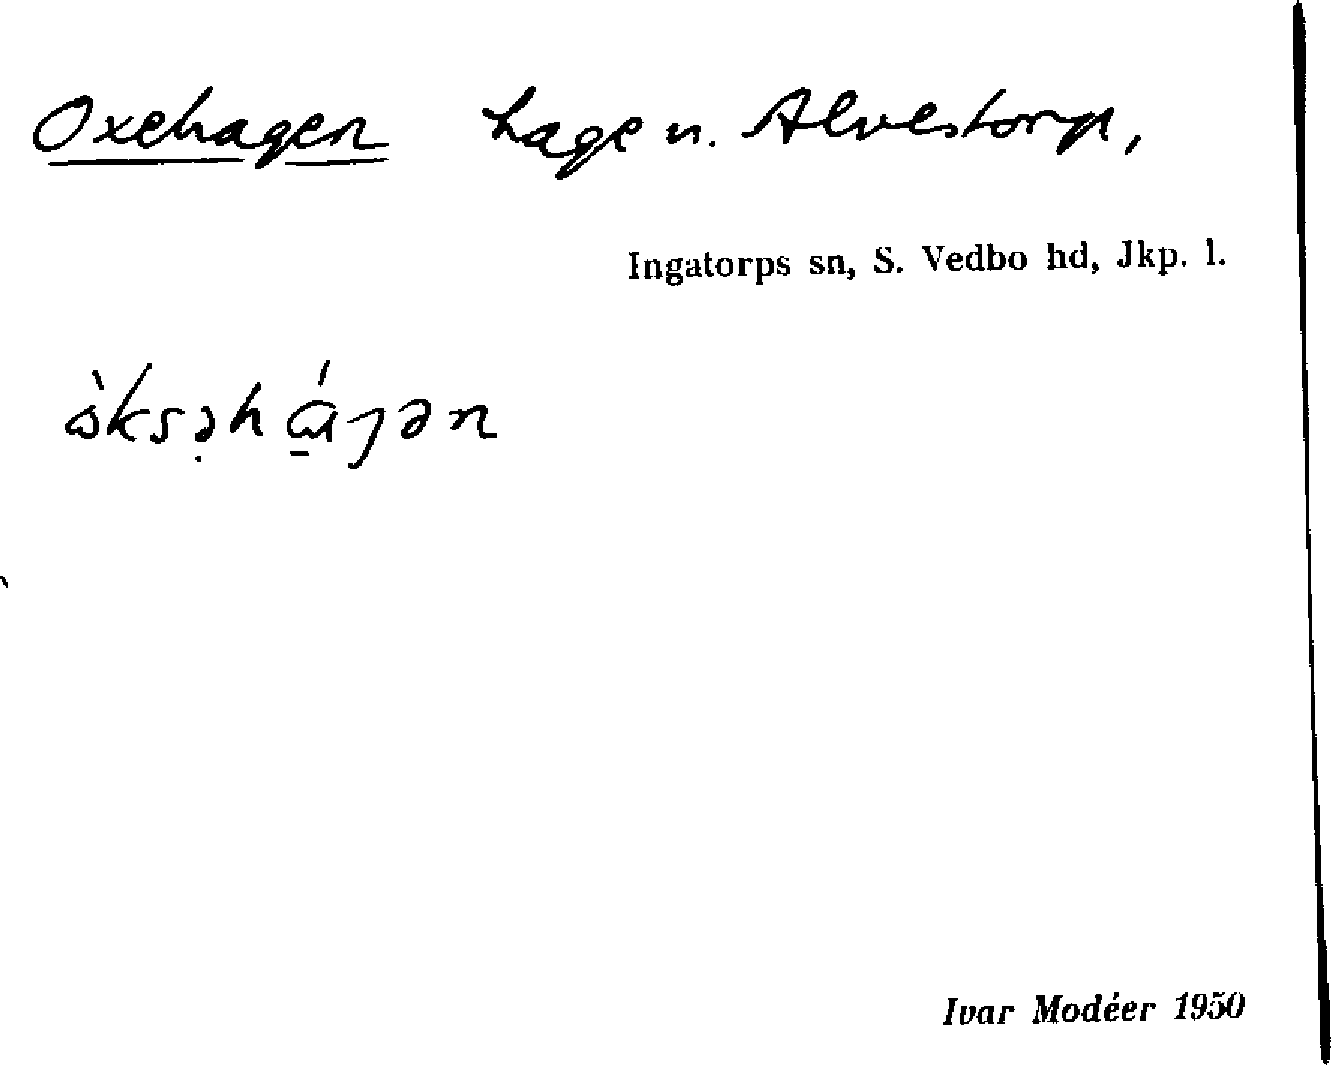 Oxehagen hage u. Alvestorp,
Ingatorps sn, S. Vedbo hd, Jkp. l.
Ivar Modéer 1950